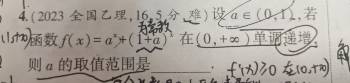 4.(2023 全国乙理,16,5分,难)设 a∈(0,1),若
函数 f(x)=aˣ+(1+a)ˣ 在(0,+∞)单调递增,
则 a 的取值范围是
f'(x)≥0 在(0,+∞)